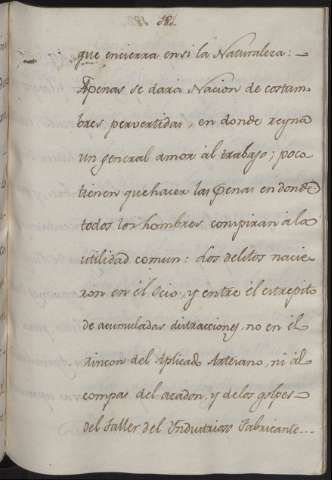 181.
que encierra en si la Naturaleza:
Apenas se dará Nacion de costum
bres pervertidas, en donde reyna
un general amor al trabajo; poco
tienen que hacer las Penas en donde
todos los hombres conspiran á la
utilidad comun: Los delitos nacie
ron en el Ocio, y entre el estrepito
de acumuladas distracciones, no en el
rincon del Aplicado Artesano, ni al
compas del azadon, y de los golpes
del Taller del Industrioso Fabricante...